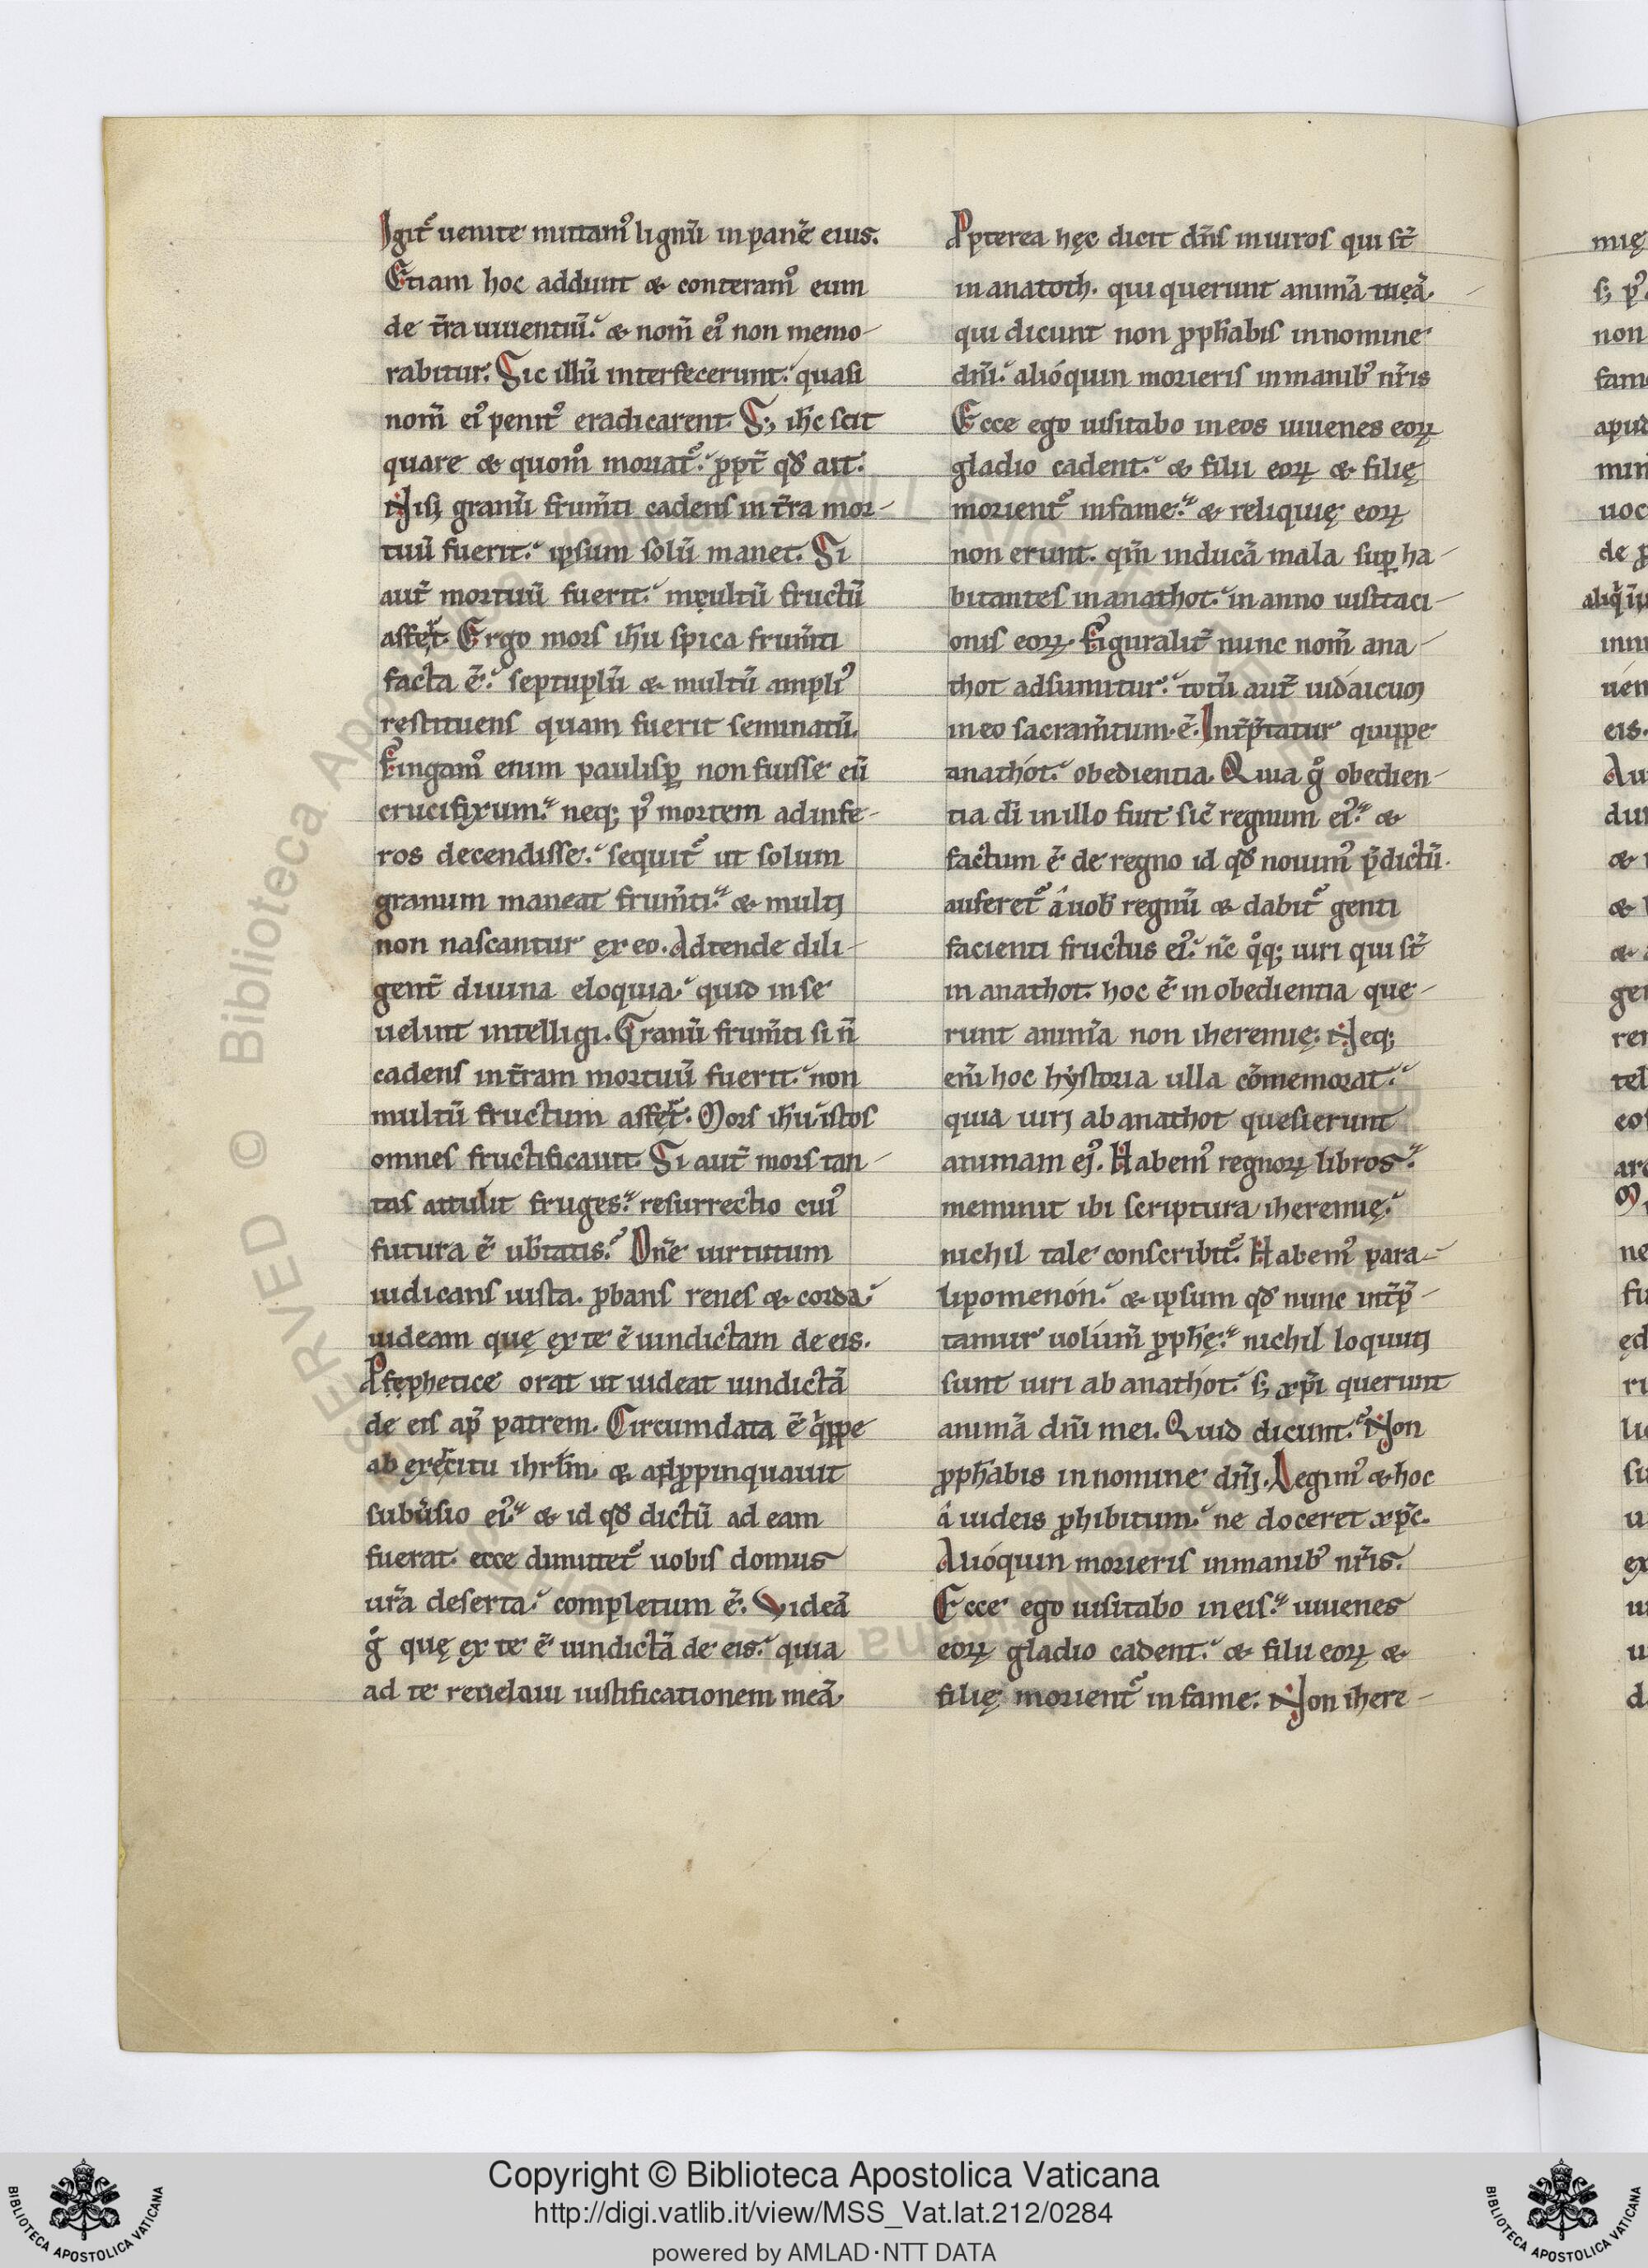 Igit᷑ uenite mittam᷒ lignū in panē eius.
Etiam hoc addunt & conteram᷒ eum
de t̄ra uiuentiū. & nom̄ ei᷒ non memo-
rabitur. Sic illū interfecerunt. quasi
nom̄ ei᷒ penit᷒ eradicarent. S; ih̄c scit
quare & quom̊ moriat᷑. ꝓpt̄ qd̄ ait.
Nisi granū frum̄ti cadens in t̄ra mor-
tuū fuerit. ipsum solū manet. Si
aut̄ mortuū fuerit. multū fructū
affert. Ergo mors ih̄u spica frum̄ti
facta ē. septuplū & multū ampli᷒
restituens quam fuerit seminatū.
Fingam᷒ enim paulisꝑ non fuisse eū
crucifixum. neq; p᷒ mortem ad infe-
ros decendisse. sequit᷑ ut solum
granum maneat frum̄ti. & multi
non nascantur ex eo. Adtende dili-
gent̄ diuina eloquia. quid in se
uelint intelligi. Granū frum̄ti si n̄
cadens in t̄ram mortuū fuerit. non
multū fructum affert. Mors ih̄u istos
omnes fructificauit. Si aut̄ mors tan-
tas attulit fruges. resurrectio cui᷒
futura ē ub̄tatis. Dn̄e uirtutum
iudicans iusta. ꝓbans renes & corda.
uideam quę ex te ē uindictam de eis.
Pfęphetice orat ut uideat uindictā
de eis ap̄ patrem. Circumdata ē qͥppe
ab exercitu ihrlm̄. & apꝓpinquauit
subūsio ei᷒. & id qd̄ dictū ad eam
fuerat. ecce dimittet᷑ uobis domus
ur̄a deserta. completum ē. Videā
gͦ quę ex te ē uindictā de eis. quia
ad te reuelaui iustificationem meā.
Ppterea hęc dicit dn̄s in uiros qui st̄
in anatoth. qui querunt animā meā.
qui dicunt non ꝓph̄abis in nomine
dn̄i. alióquin morieris in manib᷒ nr̄is
Ecce ego uisitabo in eos iuuenes eoꝝ
gladio cadent. & filii eoꝝ & filię
morient᷑ in fame. & reliquię eoꝝ
non erunt. qm̄ inducā mala suꝑ ha-
bitantes in anathot. in anno uisitaci-
onis eoꝝ. Figuralit̄ nunc nom̄ ana-
thot adsumitur. totū aut̄ iudaicum
in eo sacram̄tum ē. Int̄p̄tatur quippe
anathót. obedientia. Quia gͦ obedien-
tia dī in illo fuit sic̄ regnum ei᷒. &
factum ē de regno id qd̄ nouim᷒ p̄dictū.
auferet᷑ â uob̄ regnū & dabit᷑ genti
facienti fructus ei᷒. nc̄ qͦq; uiri qui st̄
in anathot. hoc ē in obedientia que-
runt anim̄a non iheremię. Neq;
eni᷒ hoc hẏstoria ulla cōmemorat.
quia uiri ab anathot quesierunt
animam ej᷒. Habem᷒ regnoꝝ libros.
meminit ibi scriptura iheremię.
nichil tale conscribit᷑. Habem᷒ para-
lipomenón. & ipsum qd̄ nunc int̄p̄-
tamur uolum̄ ꝓph̄ę. nichil loquuti
sunt uiri ab anathót. s; xp̄i querunt
animā dn̄i mei. Quid dicunt. Non
ꝓph̄abis in nomine dn̄j. Legim᷒ & hoc
â iudeis ꝓhibitum. ne doceret xp̄c.
Alióquin morieris in manib᷒ nr̄is.
Ecce ego uisitabo in eis. iuuenes
eoꝝ gladio cadent. & filii eoꝝ &
filię morient᷑ in fame. Non ihere-
Copyright © Biblioteca Apostolica Vaticana
http://digi.vatlib.it/view/MSS_Vat.lat.212/0284
powered by AMLAD·NTT DATA